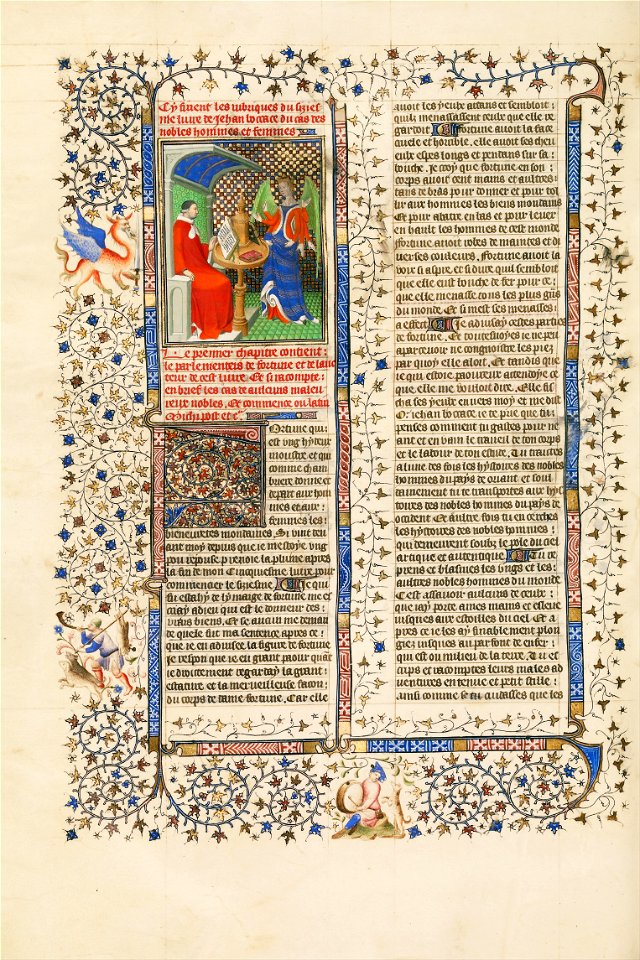 Cy finent les rubriques du sizies
me livre de Jehan bocace du cas des
nobles hommes et femmes
Le premier chapitre contient
le parlement de fortune et de lauc
teur de cest livre. Et si racompte
en brief les cas de aulcuns maleu
reux nobles. Et commence ou latin
Fortune qui
est ung hydeux
monstre et qui
comme cham
briere donne et
depart aux hom
mes et aux
femmes les
bieneuretez mondaines Si vint deu
ant moy depuis que je mestoye ung
pou repose. prenoie la plume apres
la fin de mon cinquiesme livre pour
commencer le sizesme. Je qui
fu esbahy de lymage de fortune me es
criay a dieu qui est le donneur des
vrais biens. Et se aucun me deman
de quele fut ma sentence apres ce
que je eu advise la figure de fortune
je respon que je eu grant paour quant
je droitement regarday la grant
estature et la merveilleuse facon
du corps de dame fortune. Car elle
avoit les yeulx ardans et sembloit
quilz menassassent ceulx que elle re
gardoit. Fortune avoit la face
cruele et horrible. elle avoit ses che
veulx espes longs et pendans sur sa
bouche. Je croy que fortune en son
corps avoit cent mains et aultres
tans de bras pour donner et pour tol
lir aux hommes les biens mondains
Et pour abatre en bas et pour lever
en hault les hommes de cest monde
fortune avoit robes de maintes et di
verses couleurs. Fortune avoit la
voix aspre et si dure quil sembloit
que elle eust bouche de fer pour ce
que elle menasse tous les plus grans
du monde. Et si mest ses menasses
a effect Je advisay ces parties
de fortune. Et toutesvoyes je ne peu
apercevoir ne congnoistre les piez
par quoy elle aloit. Et tandis que
je qui estoie paoureux attendoye ce
que elle me vouloit dire. Elle fi
cha ses yeulx envers moy et me dist
O jehan bocace je te pry que tu
penses comment tu gastes pour ne
ant et en vain le travail de ton corps
et le labour de ton estude. Tu traictes
a lune des fois les hystoires des nobles
hommes du pays de orient et soub
dainement tu te transportes aux hys
toires des nobles hommes du pays de
occident Et aultre fois tu encerches
les hystoires des nobles hommes
qui demeurent soubz le pole du ciel
artique et autentique. Tu re
prens et blasmes les ungs et les
aultres nobles hommes du monde
Cest assavoir aulcuns de ceulx
que jay porte a mes mains et esleve
jusques aux estoilles du ciel Et a
pres ce je les ay finablement plon
giez jusques au parfont de enfer
qui est ou milieu de la terre. Tu es
crips et racomptes leurs males ad
ventures en tenue et petit stille
ainsi comme se tu cuidasses que les